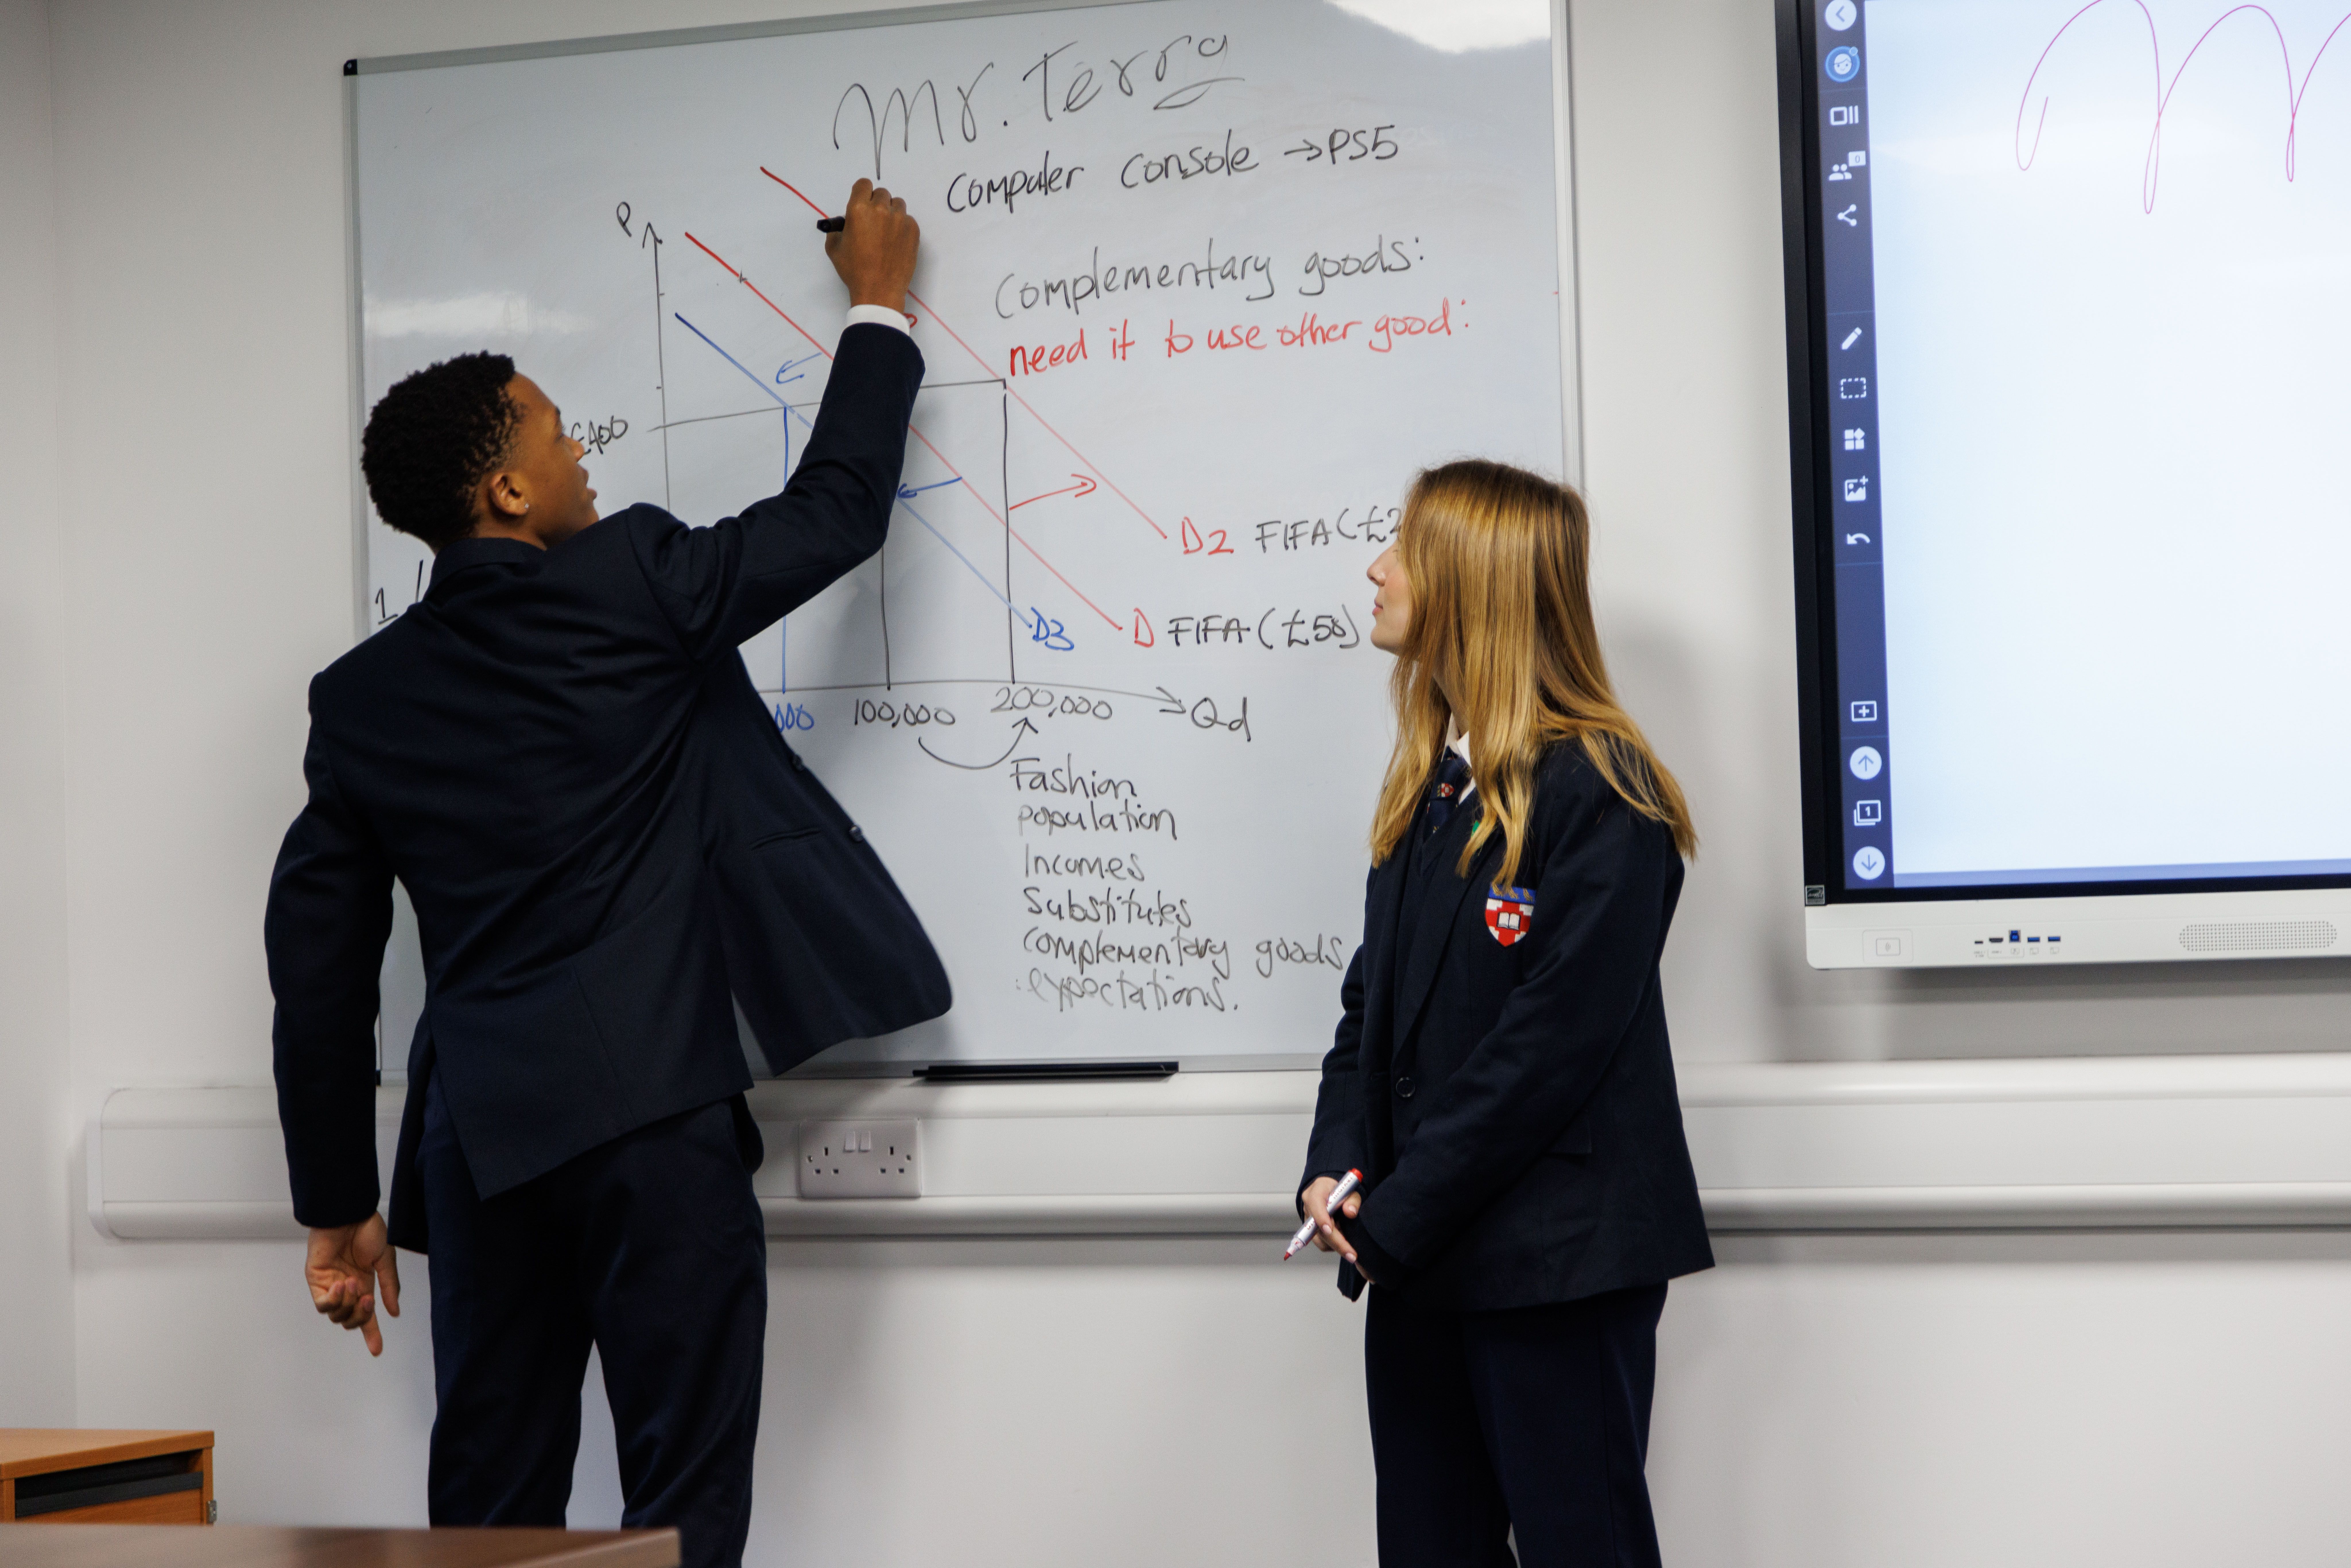 Mr. Terry
Computer console →PS5
P
Complementary goods:
need it to use other good:
£400
D2 FIFA (£2
1
D3
D FIFA (£50)
000 100,000 200,000 Qd
Fashion
population
Incomes
Substitutes
complementary goods
:expectations.
0
1